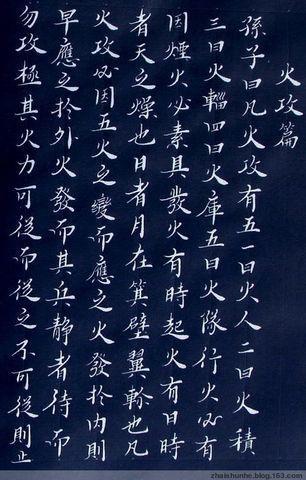 火攻篇
孫子曰凡火攻有五一曰火人二曰火積
三曰火輜四曰火庫五曰火隊行火必有
因煙火必素具發火有時起火有日時
者天之燥也日者月在箕壁翼軫也凡
火攻必因五火之變而應之火發扵内則
早應之扵外火發而其兵靜者待而
勿攻極其火力可從而從之不可從則止
zhaishunhe.blog.163.com